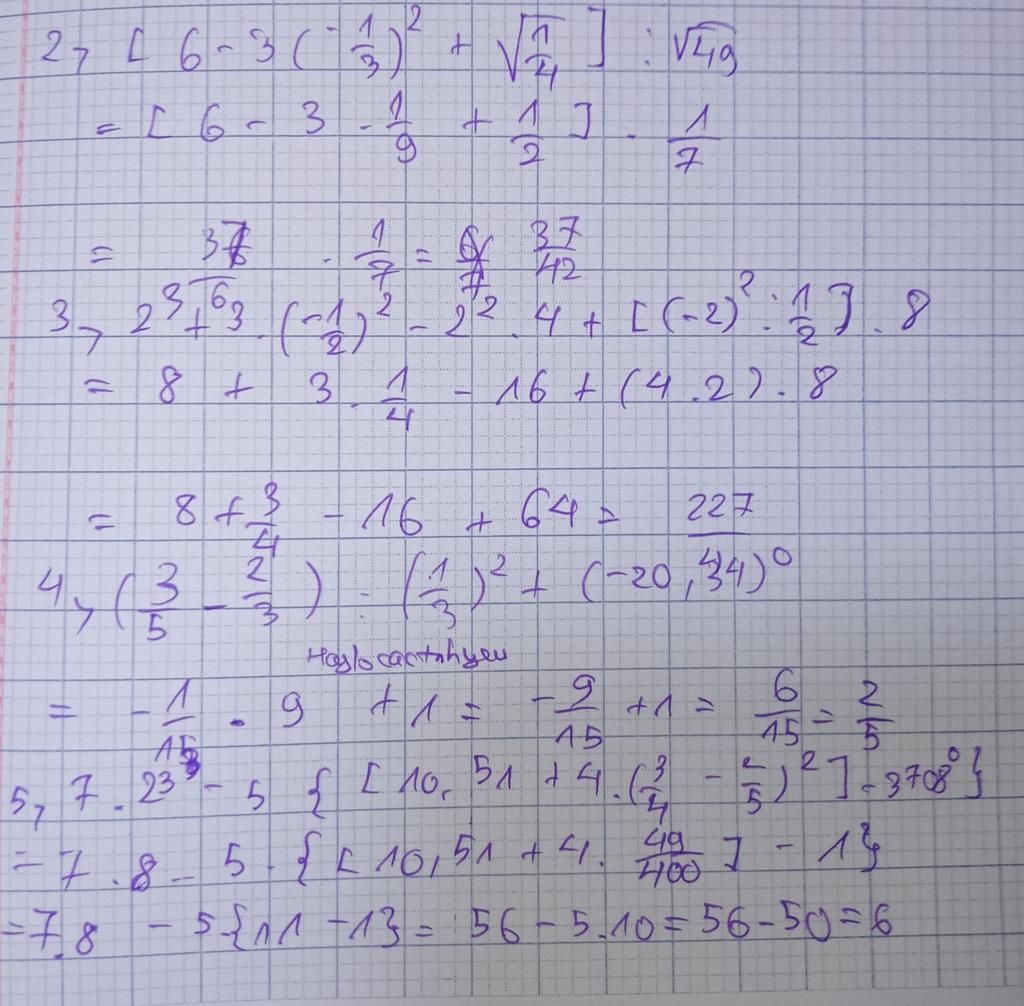 2, [ 6 - 3 (-1/3)² + √1/4 ] : √49
= [ 6 - 3 . 1/9 + 1/2 ] . 1/7
= 37/6 . 1/7 = 37/42
3, 2³ + 3 . (-1/2)² - 2² . 4 + [ (-2)² : 1/2 ] . 8
= 8 + 3 . 1/4 - 16 + (4 . 2) . 8
= 8 + 3/4 - 16 + 64 = 227/4
4, (3/5 - 2/3) : (1/3)² + (-20,34)⁰
Hoglocactnhyeu
= -1/15 . 9 + 1 = -9/15 + 1 = 6/15 = 2/5
5, 7 . 2³ - 5 { [ 10,51 + 4 . (3/4 - 2/5)² ] - 3708⁰ }
= 7 . 8 - 5 . { [ 10,51 + 4 . 49/400 ] - 1 }
= 7.8 - 5 { 11 - 1 } = 56 - 5.10 = 56 - 50 = 6